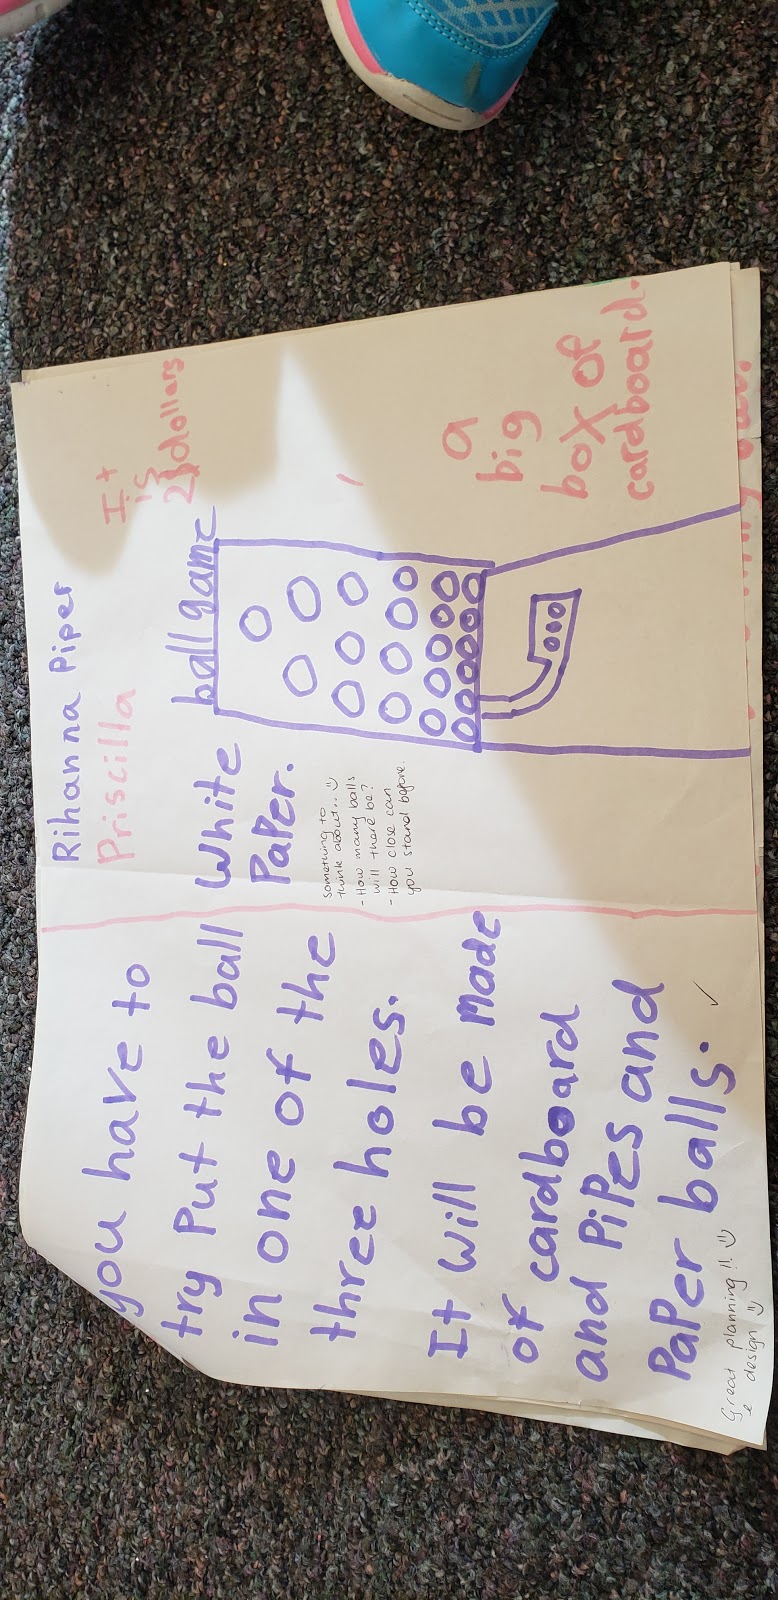 you have to
try Put the ball
in one of the
three holes.
It will be made
of cardboard
and PiPes and
PaPer balls.
Great planning!!
& design
Rihanna Piper
Priscilla
It
is
dollars
ball game
White
PaPer.
something to
think about...
- How many balls
will there be?
- How close can
you stand before.
a
big
box of
cardboard.